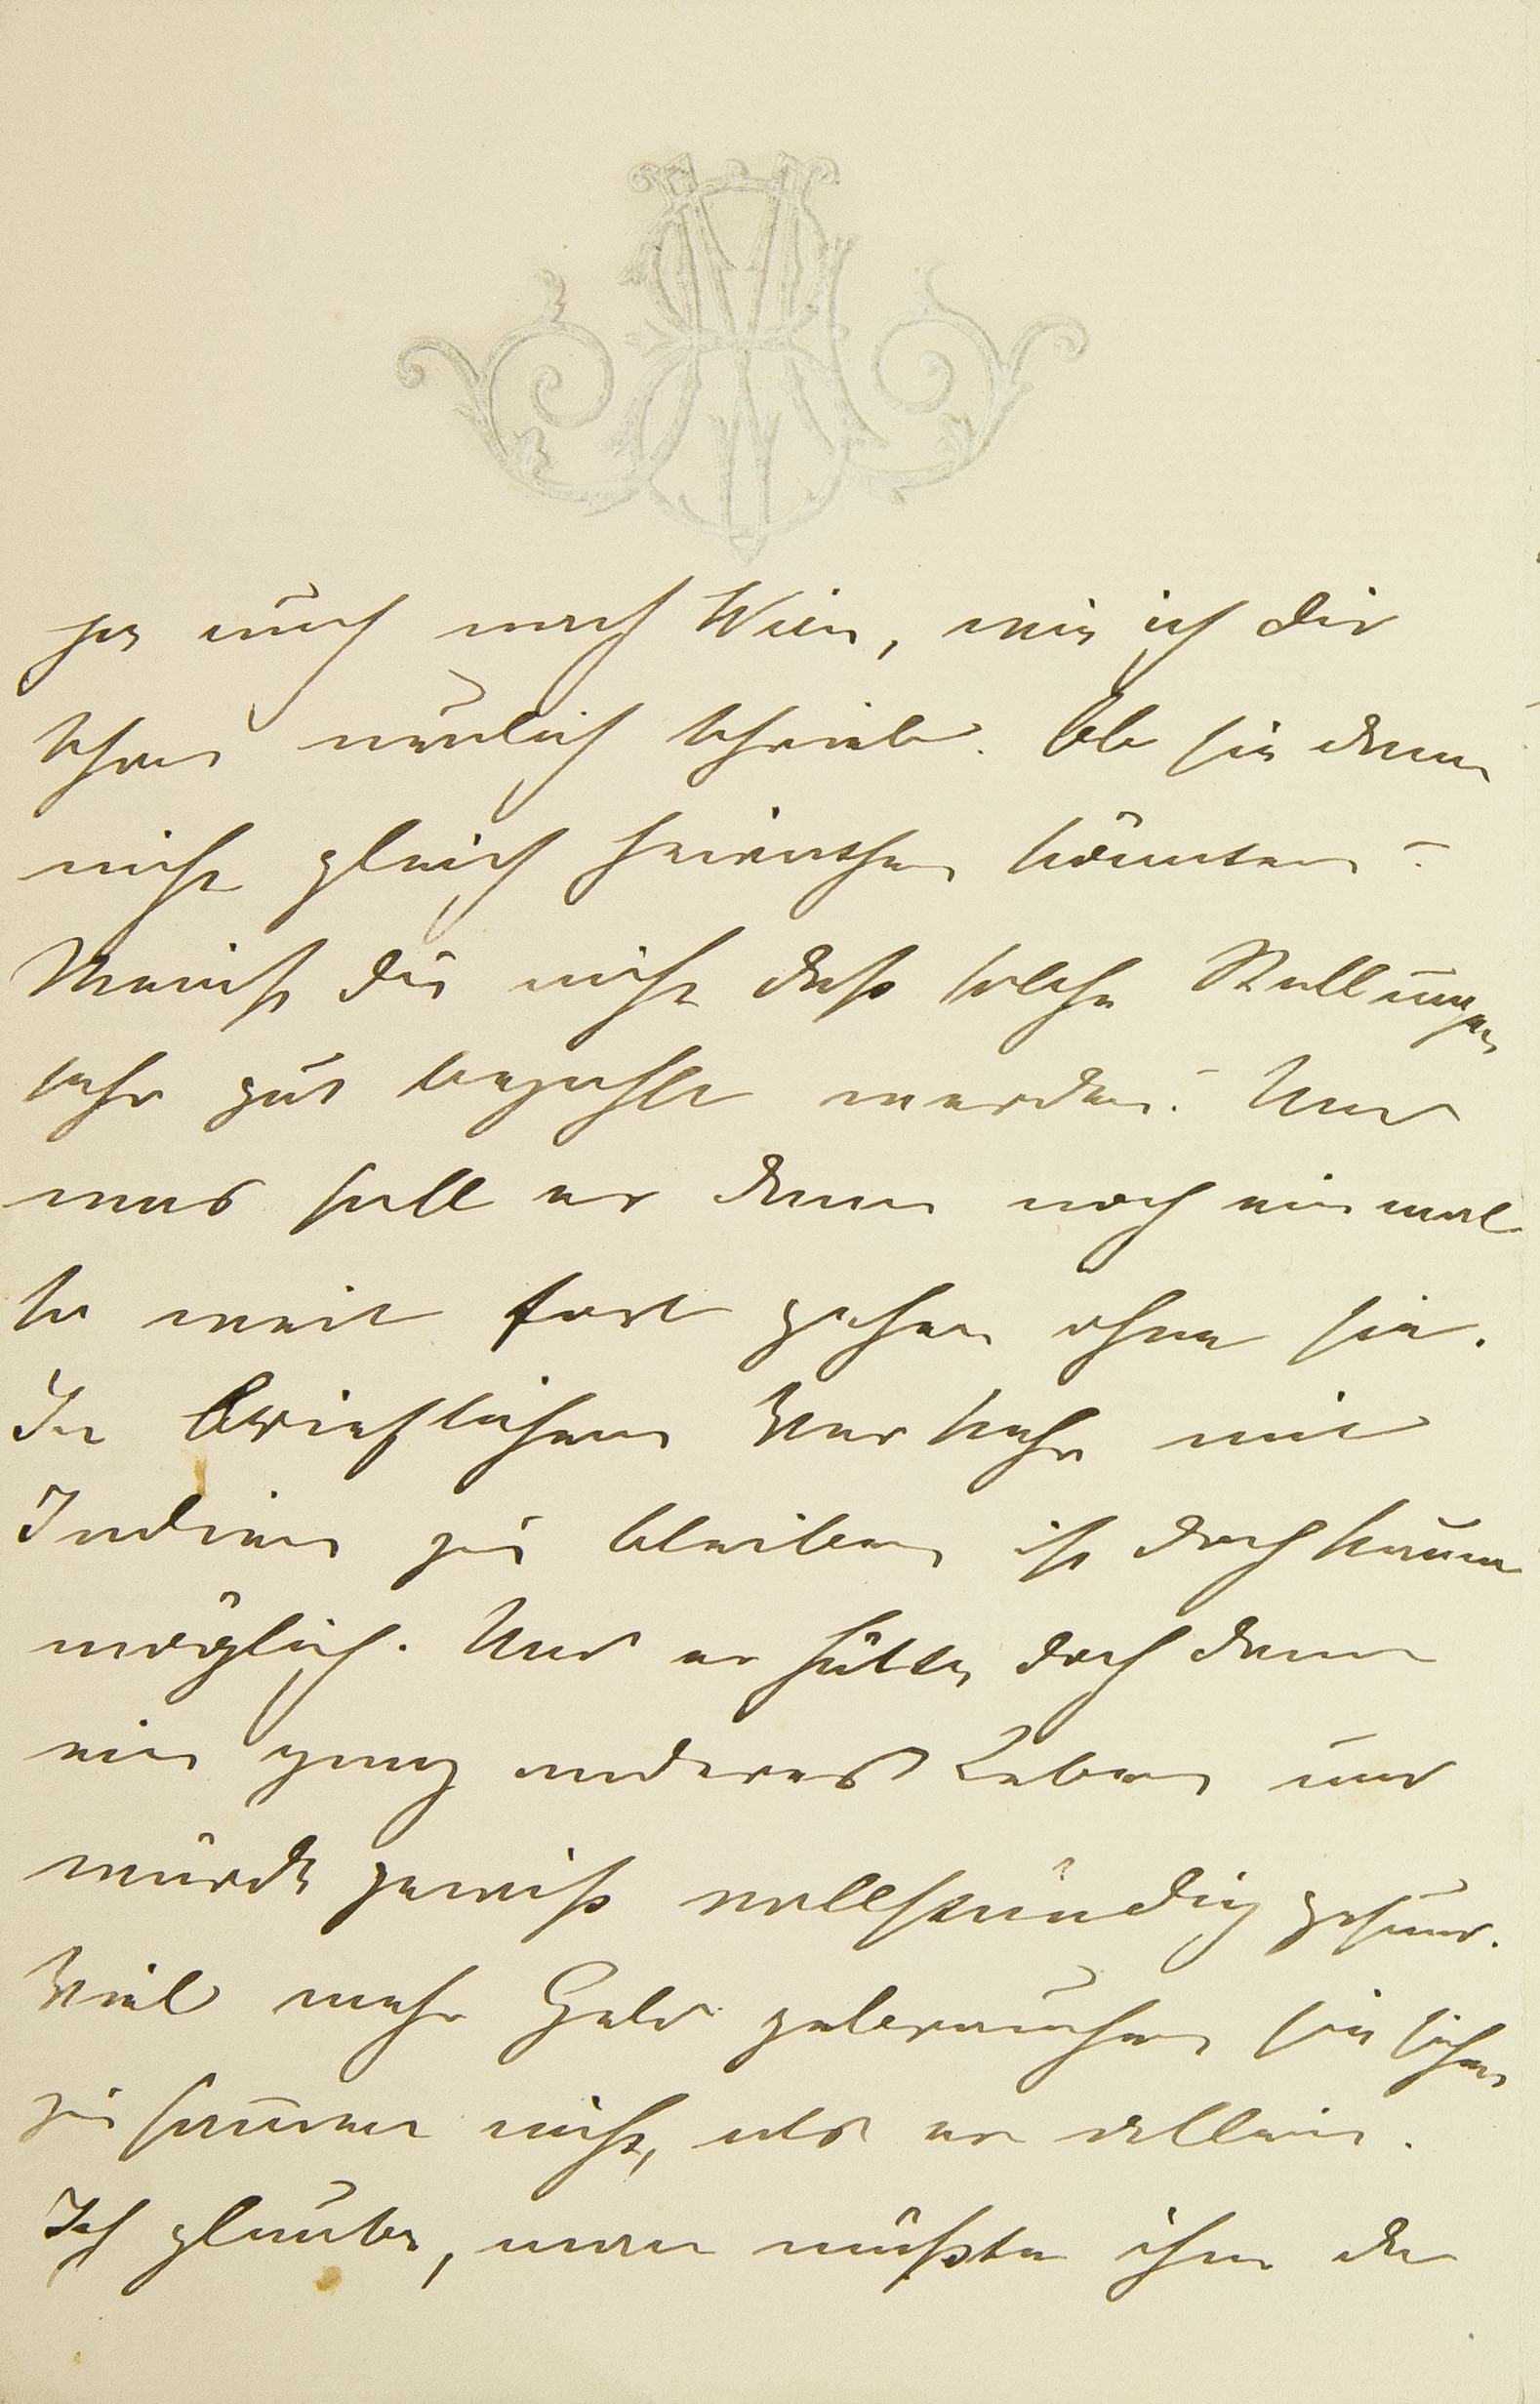 ja auch nach Wien, wie ich Dir
schon neulich schrieb. Ob sie denn
nicht gleich heirathen könnten?
Meinst Du nicht daß solche Stellungen
sehr gut bezahlt werden? Und
was soll er denn noch ein mal
so weit fort gehen ohne sie.
In brieflichem Verkehr mit
Indien zu bleiben ist doch kaum
möglich. Und er hätte doch dann
ein ganz anderes Leben und
würde gewiß vollständig gesund.
Viel mehr Geld gebrauchen sie sicher
zusammen nicht, als er allein.
Ich glaube, man müßte ihm da